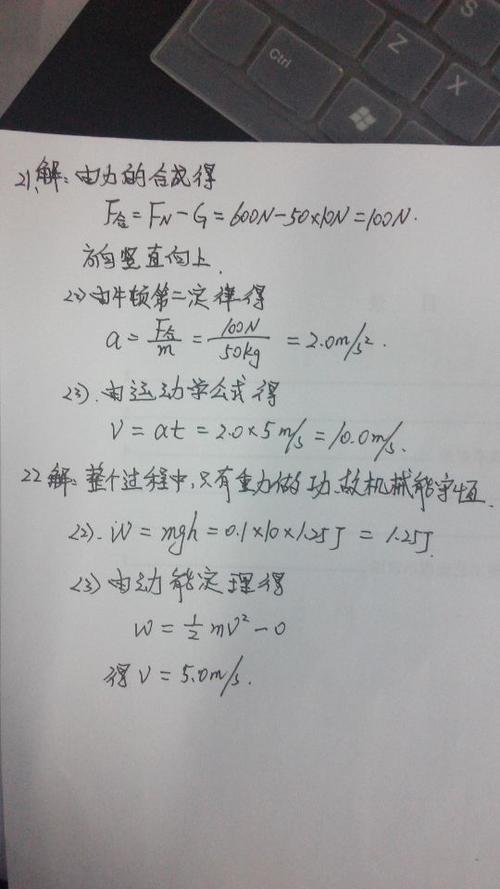 Ctrl
Z
X
S
21、解：由力的合成得
F合=FN-G=600N-50×10N=100N.
方向竖直向上.
(2)由牛顿第二定律得
a=F合/m=100N/50kg=2.0m/s².
(3).由运动学公式得
V=at=2.0×5m/s=10.0m/s.
22解：整个过程中,只有重力做功.故机械能守恒.
(2).W=mgh=0.1×10×1.25J=1.25J.
(3)由动能定理得
W=1/2mV²-0
得V=5.0m/s.